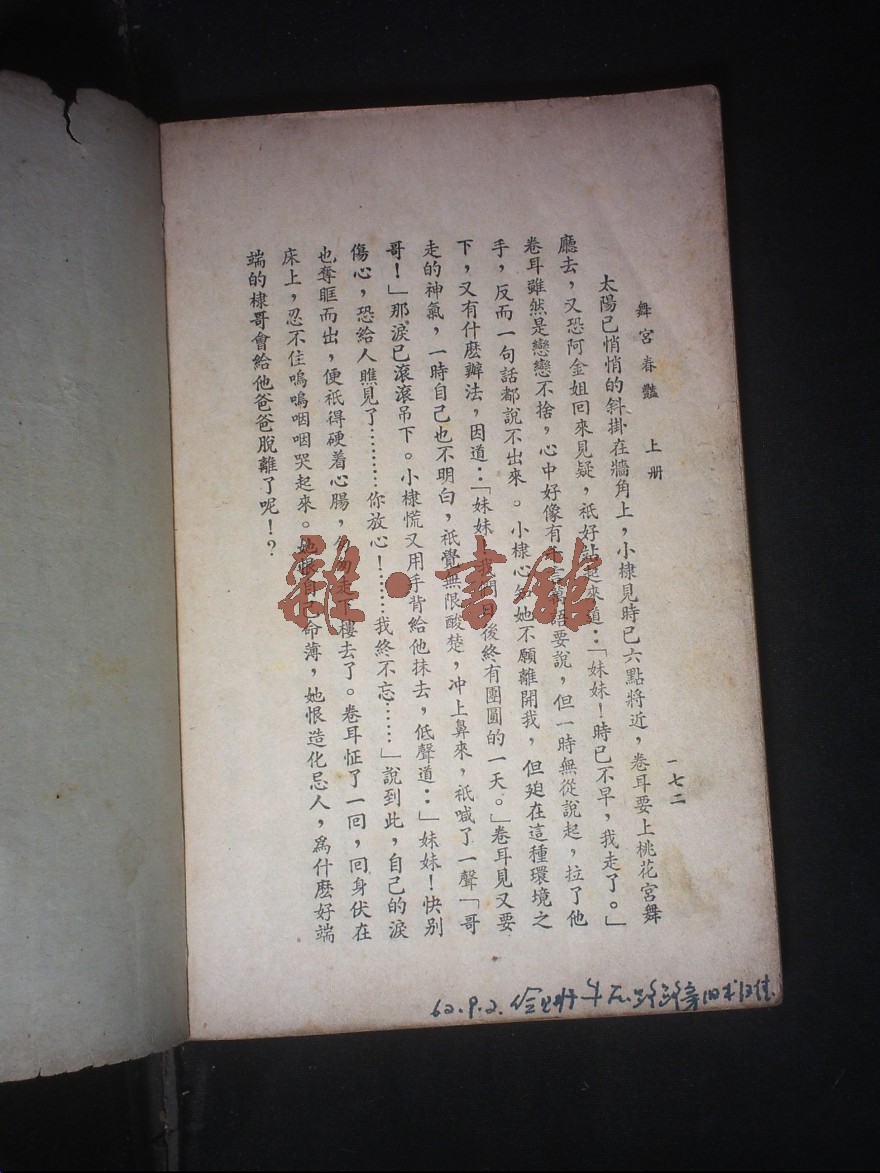 舞宮春豔　上册
一七二
太陽已悄悄的斜掛在牆角上，小棣見時已六點將近，卷耳要上桃花宮舞
廳去，又恐阿金姐回來見疑，祇好站起來道：「妹妹！時已不早，我走了。」
卷耳雖然是戀戀不捨，心中好像有千言萬語要說，但一時無從說起，拉了他
手，反而一句話都說不出來。小棣心知她不願離開我，但處在這種環境之
下，又有什麽辦法，因道：「妹妹！我們日後終有團圓的一天。」卷耳見又要
走的神氣，一時自己也不明白，祇覺無限酸楚，冲上鼻來，祇喊了一聲「哥
哥！」那淚已滾滾吊下。小棣慌又用手背給他抹去，低聲道：」妹妹！快别
傷心，恐給人瞧見了………你放心！……我終不忘……」說到此，自己的淚
也奪眶而出，便祇得硬着心腸，匆匆走下樓去了。卷耳怔了一囘，囘身伏在
床上，忍不住嗚嗚咽咽哭起來。她恨自己命薄，她恨造化忌人，爲什麽好端
端的棣哥會給他爸爸脫離了呢！？
雜·書館
62.9.2.